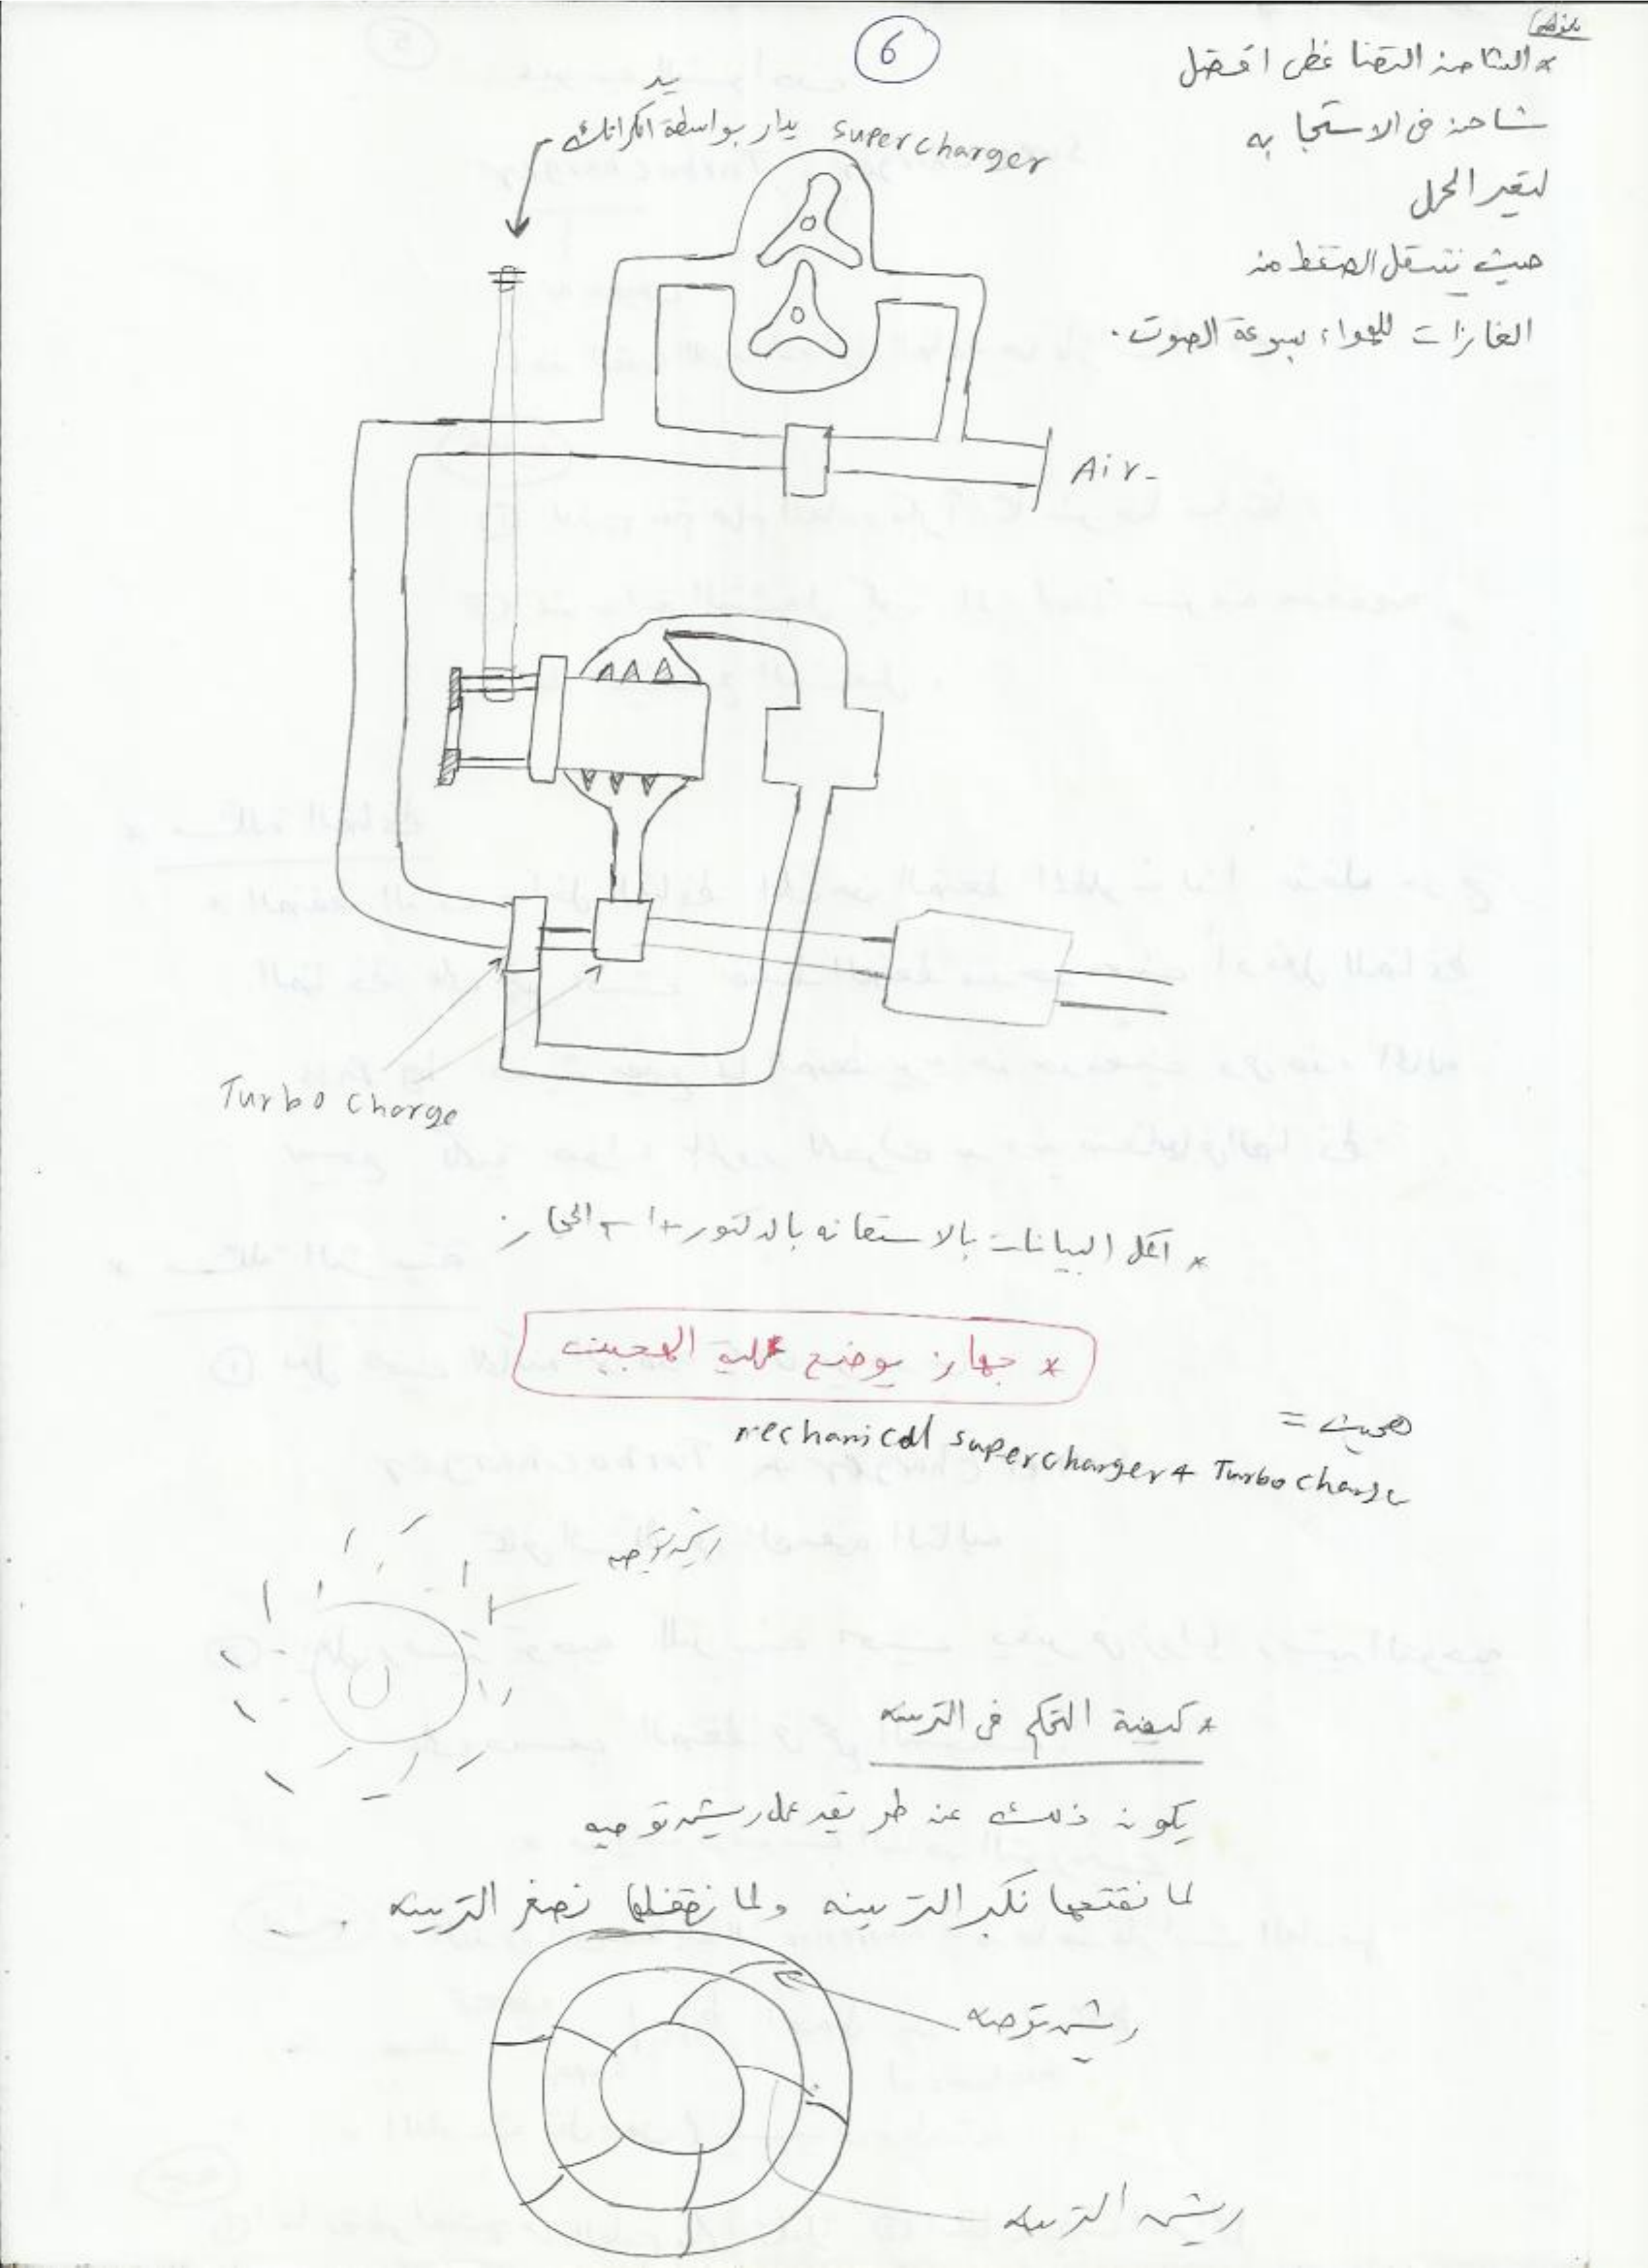 6
ملحوظه
* الشاحن التضاغطى افضل
شاحن فى الاستجابه
لتغير الحمل
حيث ينتقل الضغط من
الغازات للهواء بسرعة الصوت.
supercharger يدار بواسطة الكرانك
Air
Turbo charge
* اكمل البيانات بالاستعانه بالدكتور
* جهاز يوضح عمليه الهجين
هجين =
mechanical supercharger + Turbo charge
ريش توجيه
* كيفية التحكم فى التربينه
يكون ذلك عن طريق عمل ريش توجيه
لما نفتحها نكبر التربينه ولما نقفلها نصغر التربينه.
ريش توجيه
ريش التربينه